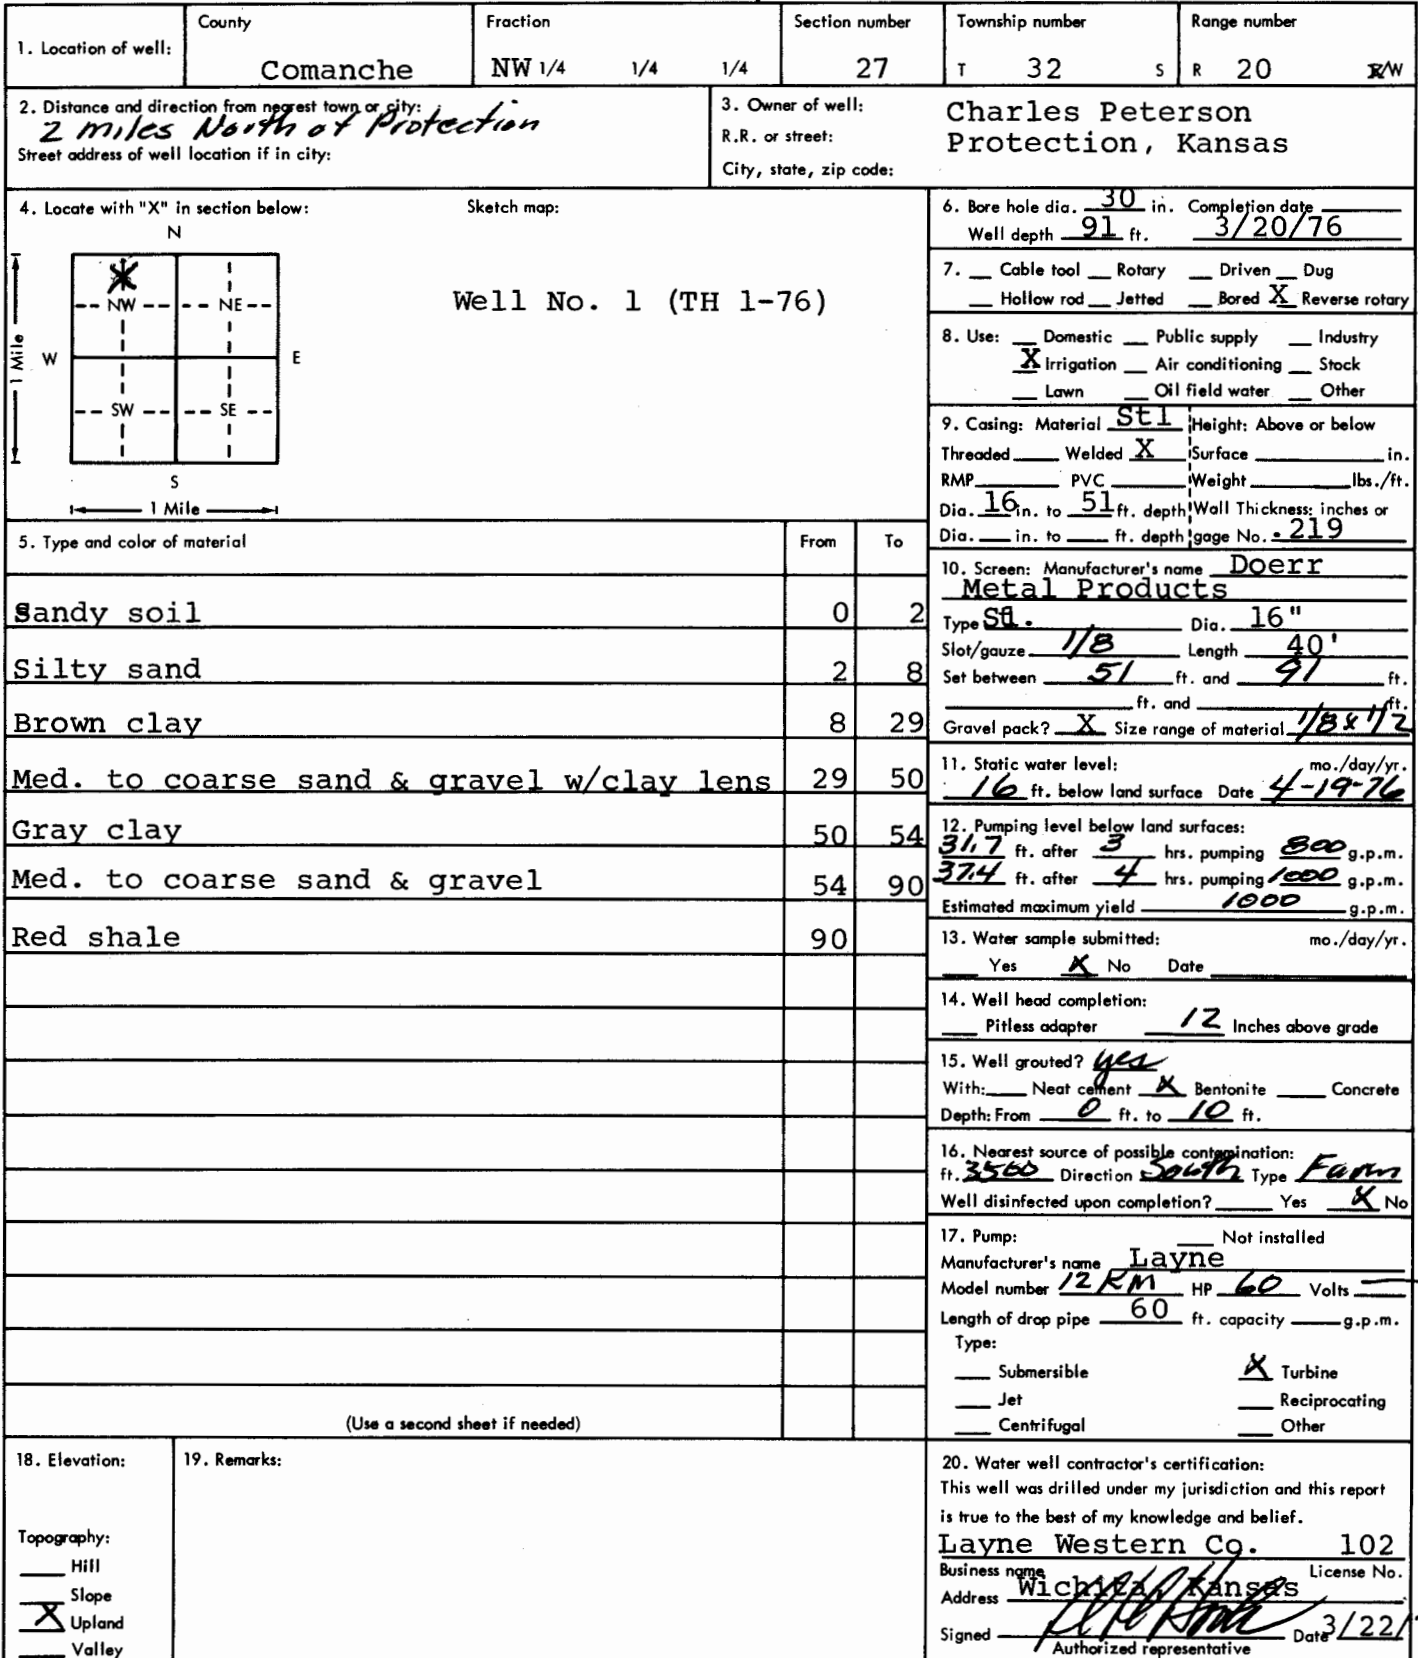 County Fraction Section number Township number Range number
1. Location of well: Comanche NW 1/4 1/4 1/4 27 T 32 S R 20 E/W
2. Distance and direction from nearest town or city:
2 miles North of Protection
Street address of well location if in city:
3. Owner of well: Charles Peterson
R.R. or street: Protection, Kansas
City, state, zip code:
4. Locate with "X" in section below: Sketch map:
N
NW NE
W E
SW SE
S
1 Mile
1 Mile
Well No. 1 (TH 1-76)
5. Type and color of material From To
Sandy soil 0 2
Silty sand 2 8
Brown clay 8 29
Med. to coarse sand & gravel w/clay lens 29 50
Gray clay 50 54
Med. to coarse sand & gravel 54 90
Red shale 90
(Use a second sheet if needed)
6. Bore hole dia. 30 in. Completion date
Well depth 91 ft. 3/20/76
7. Cable tool Rotary Driven Dug
Hollow rod Jetted Bored X Reverse rotary
8. Use: Domestic Public supply Industry
X Irrigation Air conditioning Stock
Lawn Oil field water Other
9. Casing: Material Stl Height: Above or below
Threaded Welded X Surface in.
RMP PVC Weight lbs./ft.
Dia. 16 in. to 51 ft. depth Wall Thickness: inches or
Dia. in. to ft. depth gage No. .219
10. Screen: Manufacturer's name Doerr
Metal Products
Type Stl. Dia. 16"
Slot/gauze 1/8 Length 40'
Set between 51 ft. and 91 ft.
ft. and ft.
Gravel pack? X Size range of material 1/8 x 1/2
11. Static water level: mo./day/yr.
16 ft. below land surface Date 4-19-76
12. Pumping level below land surfaces:
31.7 ft. after 3 hrs. pumping 800 g.p.m.
37.4 ft. after 4 hrs. pumping 1000 g.p.m.
Estimated maximum yield 1000 g.p.m.
13. Water sample submitted: mo./day/yr.
Yes X No Date
14. Well head completion:
Pitless adapter 12 Inches above grade
15. Well grouted? yes
With: Neat cement X Bentonite Concrete
Depth: From 0 ft. to 10 ft.
16. Nearest source of possible contamination:
ft. 3500 Direction South Type Farm
Well disinfected upon completion? Yes X No
17. Pump: Not installed
Manufacturer's name Layne
Model number 12 KM HP 60 Volts
Length of drop pipe 60 ft. capacity g.p.m.
Type:
Submersible X Turbine
Jet Reciprocating
Centrifugal Other
18. Elevation: 19. Remarks:
Topography:
Hill
Slope
X Upland
Valley
20. Water well contractor's certification:
This well was drilled under my jurisdiction and this report
is true to the best of my knowledge and belief.
Layne Western Co. 102
Business name License No.
Address Wichita, Kansas
Signed Date 3/22/
Authorized representative